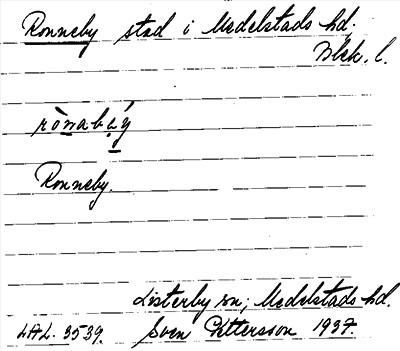 Ronneby stad i Medelstads hd.
Blek. l.
Ronneby.
Listerby sn, Medelstads hd.
LAL. 3539. Sven Pettersson 1937.